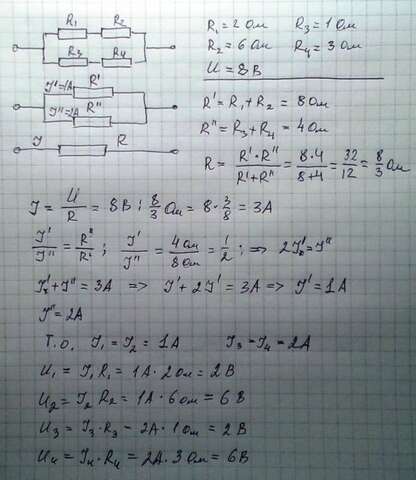 R₁ R₂
R₃ R₄
R₁ = 2 Ом R₃ = 1 Ом
R₂ = 6 Ом R₄ = 3 Ом
U = 8 В
I' = 1A R'
I'' = 2A R''
I R
R' = R₁ + R₂ = 8 Ом
R'' = R₃ + R₄ = 4 Ом
R = R' · R'' / R' + R'' = 8 · 4 / 8 + 4 = 32 / 12 = 8 / 3 Ом
I = U / R = 8 В : 8 / 3 Ом = 8 · 3 / 8 = 3 А
I' / I'' = R'' / R' ; I' / I'' = 4 Ом / 8 Ом = 1 / 2 ; => 2I' = I''
I' + I'' = 3A => I' + 2I' = 3A => I' = 1A
I'' = 2A
Т.О. I₁ = I₂ = 1A I₃ = I₄ = 2A
U₁ = I₁ R₁ = 1A · 2 Ом = 2 В
U₂ = I₂ R₂ = 1A · 6 Ом = 6 В
U₃ = I₃ · R₃ = 2A · 1 Ом = 2 В
U₄ = I₄ · R₄ = 2A · 3 Ом = 6В